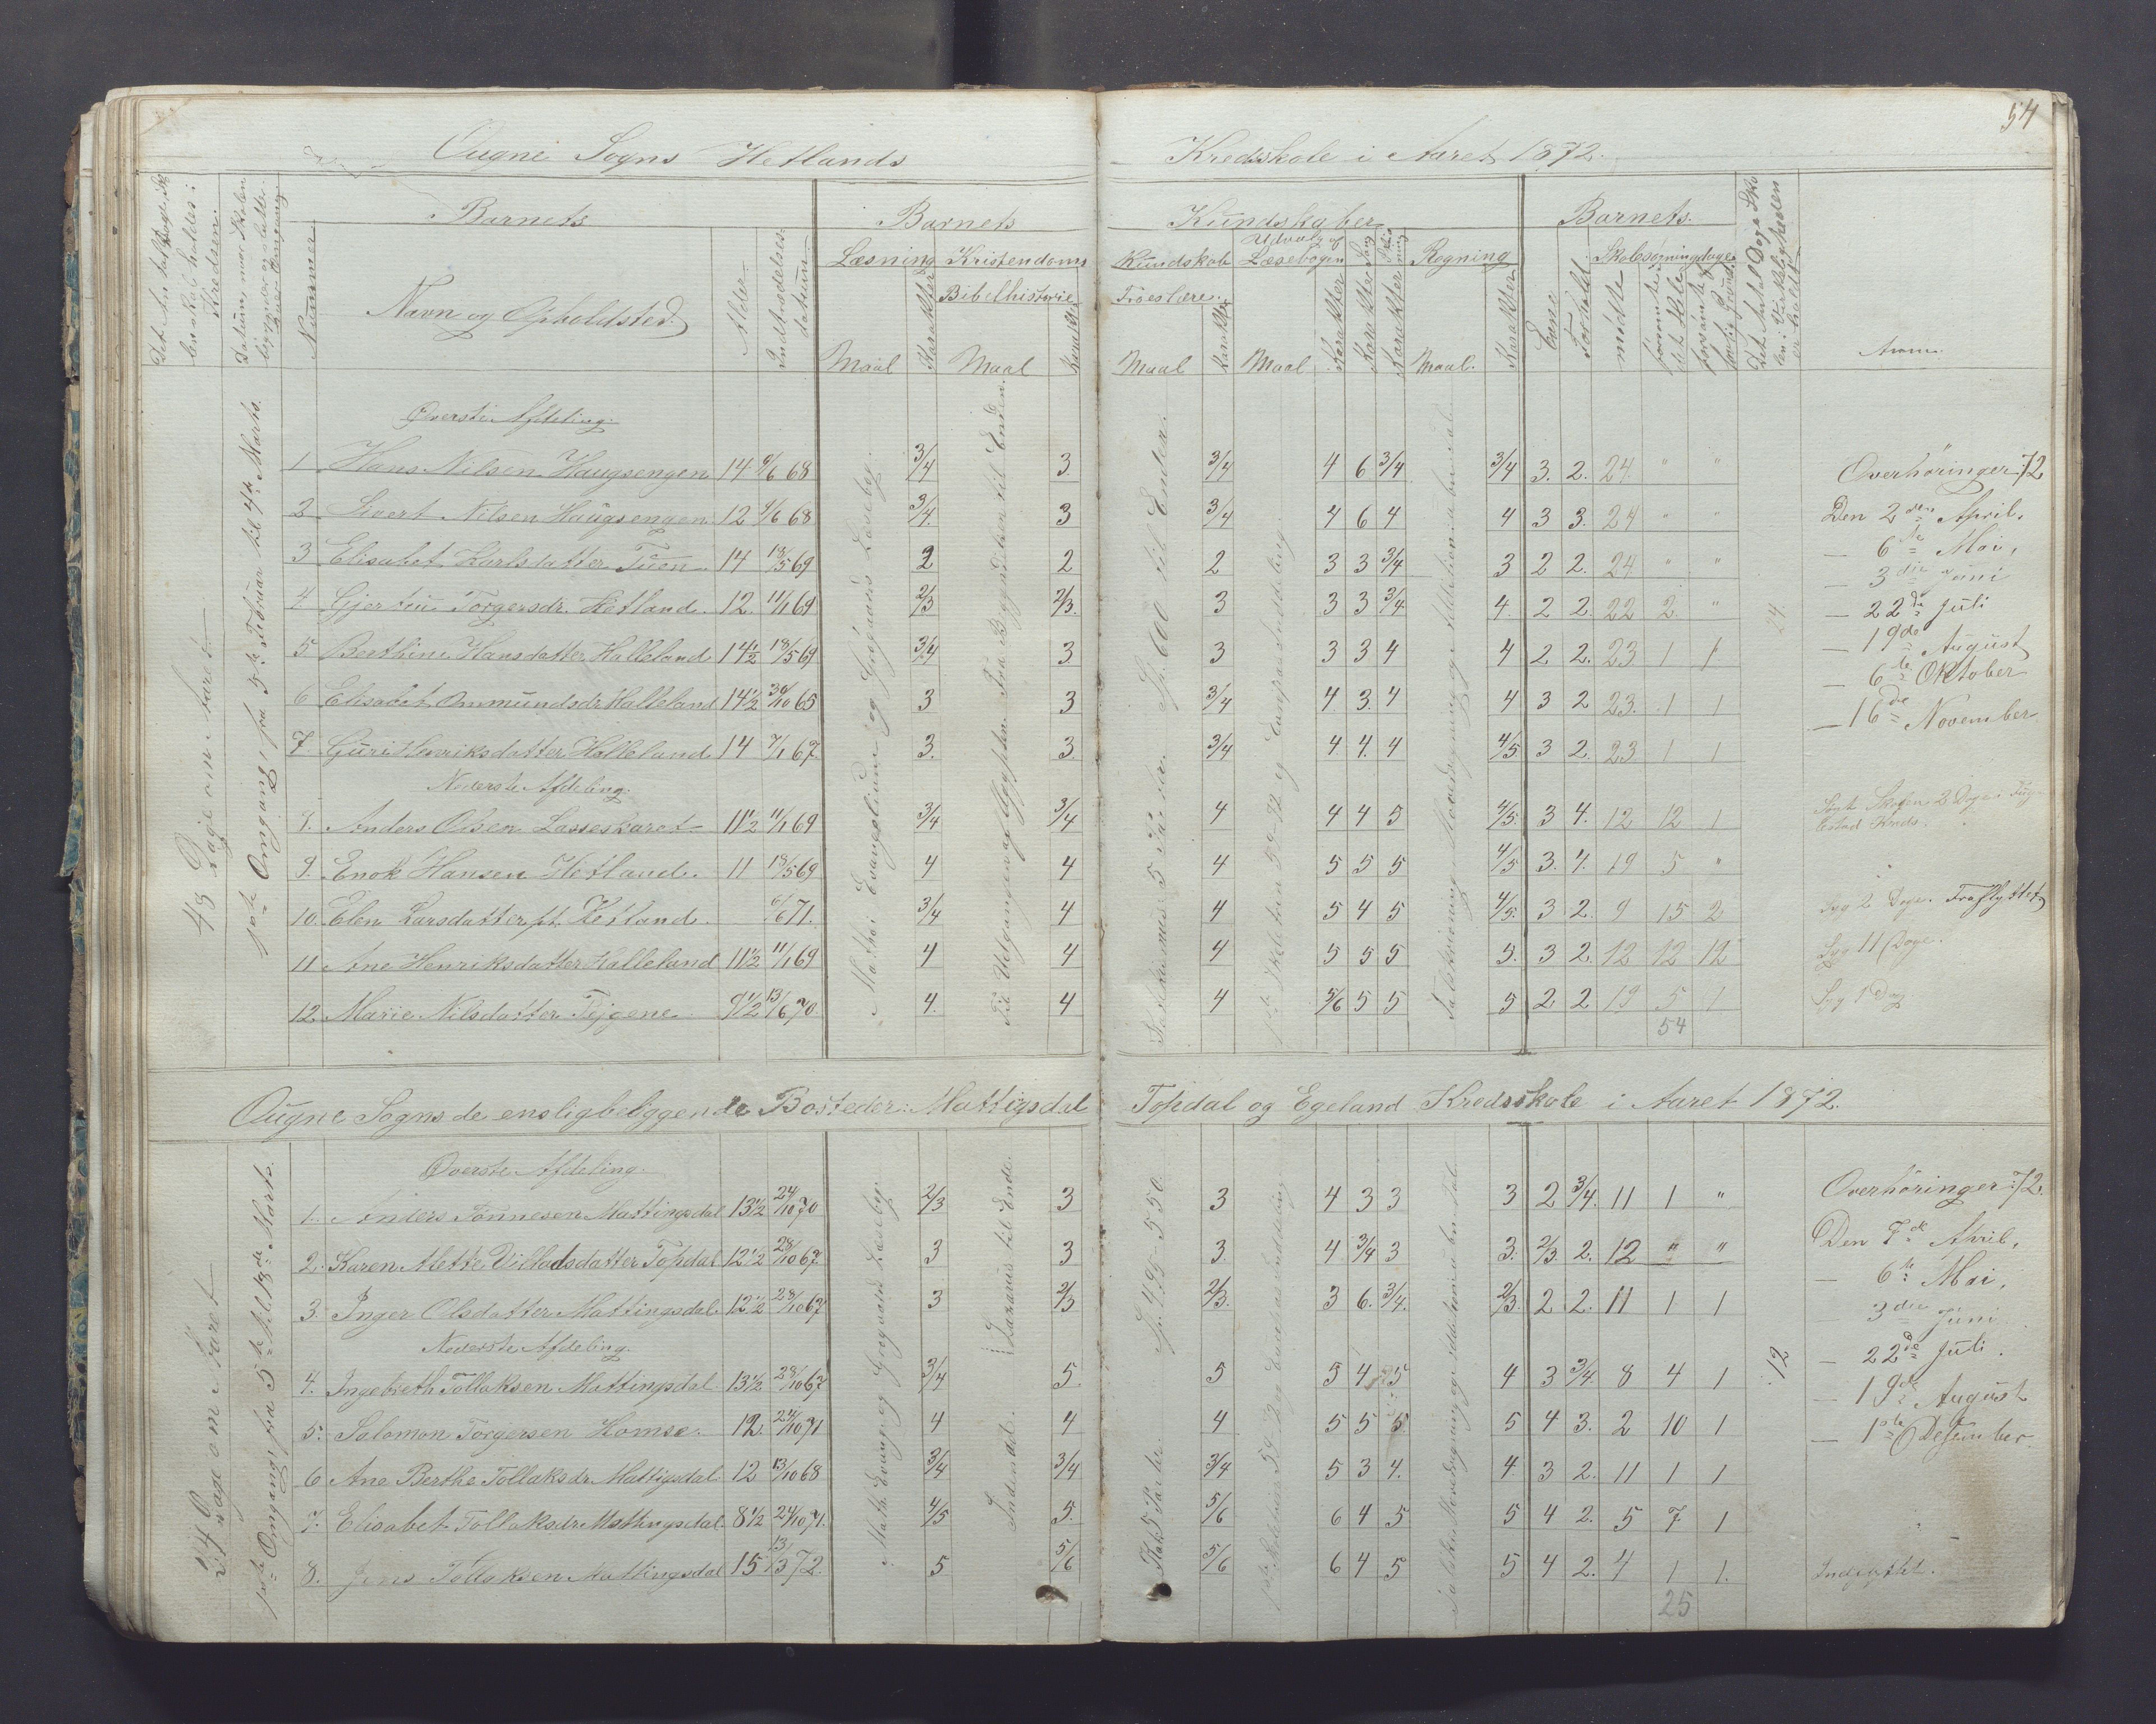 54
Ougne Sogns Hetlands Kredsskole i Aaret 1872.
Barnets Barnets Kundskaber Barnets.
Nummer
Navn og Opholdsted.
Alder
Indtrædelses datum
Læsning Kristendoms Kundskab Udvalg af Læsebogen Sang Regning Evne Forhold Skolesøgningsdage
Bibelhistorie Troeslære
Maal Karakter Maal Karakter Maal Karakter Maal Karakter Karakter Karakter Maal. Karakter mødte Anm.
48 Dage om Aaret
1ste Omgang fra 5te Februar til 4de Marts.
Øverste Afdeling.
1 Hans Nilsen Haugsengen 14 9/6 68 3/4 3 3/4 4 6 3/4 3/4 3. 2. 24 " "
2 Sivert Nilsen Haugsengen 12 9/6 68 3/4. 3 3/4 4 6 4 4 3 3. 24 " "
3 Elisabet Karlsdatter Tuen 14 18/5 69 2 2 2 3 3 3/4 3 2 2. 24 " "
4 Gjertru Torgersdr. Hetland. 12. 11/1 69 2/3 2/3. 3 3 3 3/4 4. 2 2. 22 2. "
5 Berthine Hansdatter Halleland 14 1/2 18/5 69 3/4 3 3 3 3 4 4 2 2. 23 1 1
6 Elisabet Ommundsdr. Halleland 14 1/2 30/10 65 3 3 3/4 4 3. 4 4 3 2 23. 1 1
7. Guri Henriksdatter Halleland 14 7/1 67. 3. 3. 3/4 4 4. 4 4/5 3 2. 23 1 1
Nederste Afdeling.
8. Anders Olsen Lasseskaret 11 1/2 11/1 69 3/4 3/4 4 4 4 5 4/5. 3 4. 12 12 1
9. Enok Hansen Hetland. 11 18/5 69 4 4 4 5 5 5 4/5 3. 4. 19 5 "
10. Elen Larsdatter pt. Hetland. 6/6 71. 3/4 4 4 5 4 5 4/5. 3 2. 9 15 2
11 Ane Henriksdatter Halleland 11 1/2 11/1 69 4 4 4 5 5 5 5. 3 2. 12 12 12
12 Marie Nilsdatter Tejgene 9 1/2 13/6 70. 4. 4 4 5/6 5 5 5 2 2 19 5 1
54
24.
Til Udgangen af Ægypten. Fra Begyndelsen til Enden.
Sp. 600 til Enden.
Overhøringer 72
Den 2den April.
— 6te Mai,
— 3die Juni
— 22de Juli
— 19de August
— 6te Oktober
— 16de November
Syg 2 Dage. Fraflyttet
Syg 11 Dage.
Syg 1 Dag
Ougne Sogns de ensligbeliggende Bosteder: Mattigsdal Topdal og Egeland Kredsskole i Aaret 1872.
24 Dage om Aaret
1ste Omgang fra 5te til 18de Marts.
Øverste Afdeling.
1. Anders Tønnesen Mattingsdal 13 1/2 24/10 70 2/3 3 3 4 3 3 3 2 3/4. 11 1 "
2. Karen Mette Villadsdatter Topdal 12 1/2 28/10 67. 3 3 3. 4. 3/4 3 3. 2/3. 2. 12 " "
3. Inger Olsdatter Mattingsdal. 12 1/2 28/10 67 3 2/3 2/3. 3 6. 3/4. 2/3. 2 2. 11 1 1
Nederste Afdeling.
4. Ingebreth Tollaksen Mattingsdal 13 1/2 28/10 67 3/4 5. 5 5 4 5 4 3 3/4. 8 4 1
5. Salomon Torgersen Homse. 12. 24/10 71 4 4 4 5 5 5. 5 4 3. 2 10 1
6 Ane Berthe Tollaksdr. Mattigsdal 12 13/10 68 3/4 3/4 3/4 5 3 4. 4. 3 2. 11 1 1
7. Elisabet Tollaksdr. Mattingsdal. 8 1/2 24/10 71. 4/5 5. 5/6 6 4 5 5 4 2. 5 7 1
8. Jens Tollaksen Mattingsdal 15 13/3 72. 5 5/6 5/6 6 4 5 5 4 2. 4 1 1.
25
12
Lazarus til Ende.
Sp. 495-550.
Overhøringer 72.
Den 7de April,
— 6te Mai,
— 3die Juni
— 22de Juli.
— 19de August
— 1ste Desember.
Indflyttet.